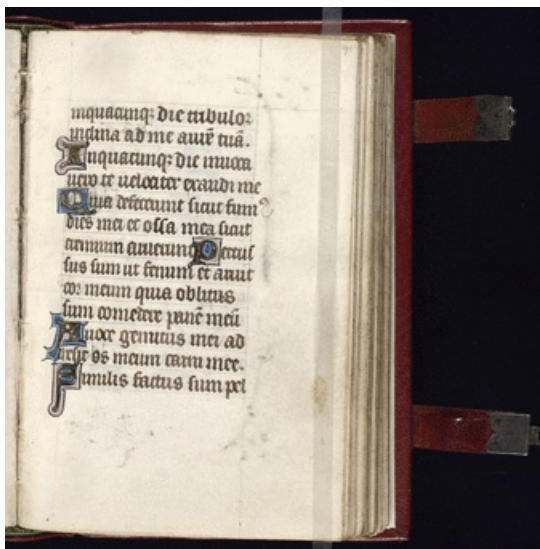 inquacunqꝫ die tribulor
inclina ad me aurē tuā.
Inquacunqꝫ die inuoca
uero te uelociter exaudi me
Quia defecerunt sicut fum
dies mei et ossa mea sicut
cremium aruerunt Percus
sus sum ut fenum et aruit
cor meum quia oblitus
sum comedere panē meū
Auoce gemitus mei ad
hesit os meum carni mee.
Similis factus sum pel